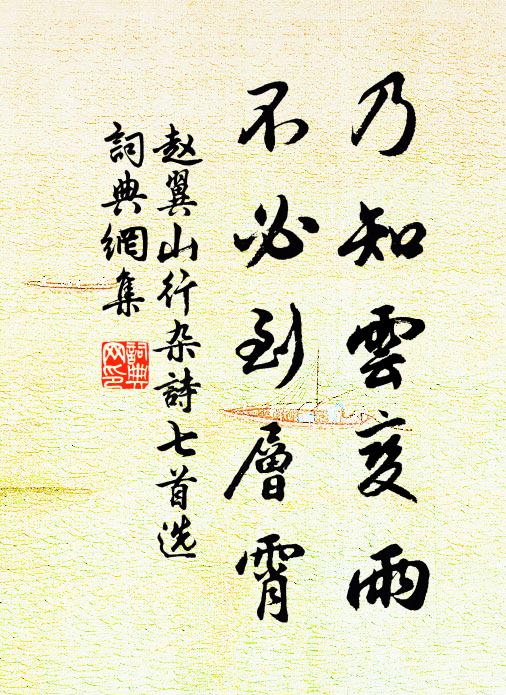 乃知雲变雨
不必到層霄
赵翼山行杂詩七首选
詞典網集
詞典
网印